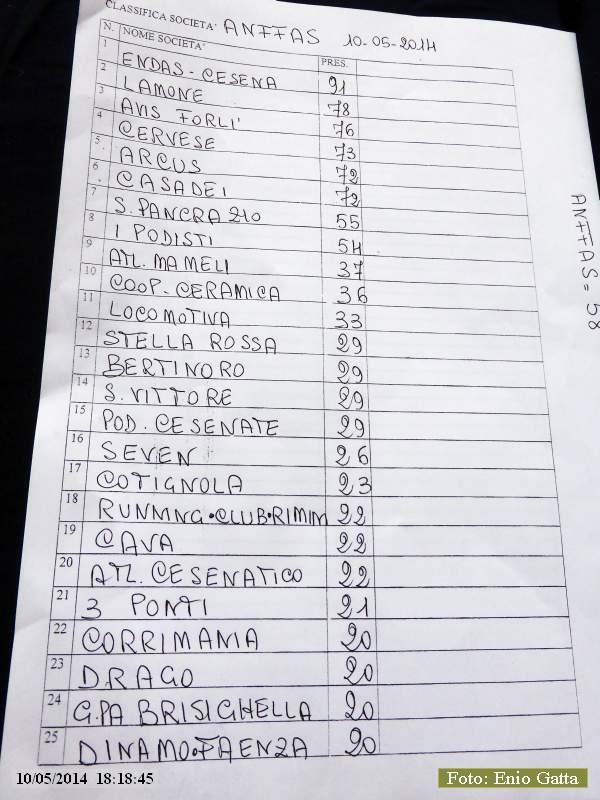 CLASSIFICA SOCIETA' ANFFAS 10-05-2014
N. NOME SOCIETA' PRES.
1 ENDAS-CESENA 91
2 LAMONE 78
3 AVIS FORLI' 76
4 CERVESE 73
5 ARCUS 72
6 CASADEI 72
7 S. PANCRAZIO 55
8 I PODISTI 54
9 ATL. MAMELI 37
10 COOP-CERAMICA 36
11 LOCOMOTIVA 33
12 STELLA ROSSA 29
13 BERTINORO 29
14 S. VITTORE 29
15 POD. CESENATE 29
16 SEVEN 26
17 COTIGNOLA 23
18 RUNNING•CLUB•RIMINI 22
19 CAVA 22
20 ATL. CESENATICO 22
21 3 PONTI 21
22 CORRIMANIA 20
23 DRAGO 20
24 G.PA BRISIGHELLA 20
25 DINAMO•FAENZA 20
ANFFAS = 58
10/05/2014 18:18:45
Foto: Enio Gatta